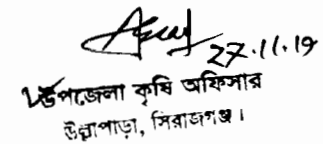 27.11.19
উপজেলা কৃষি অফিসার
উল্লাপাড়া, সিরাজগঞ্জ।